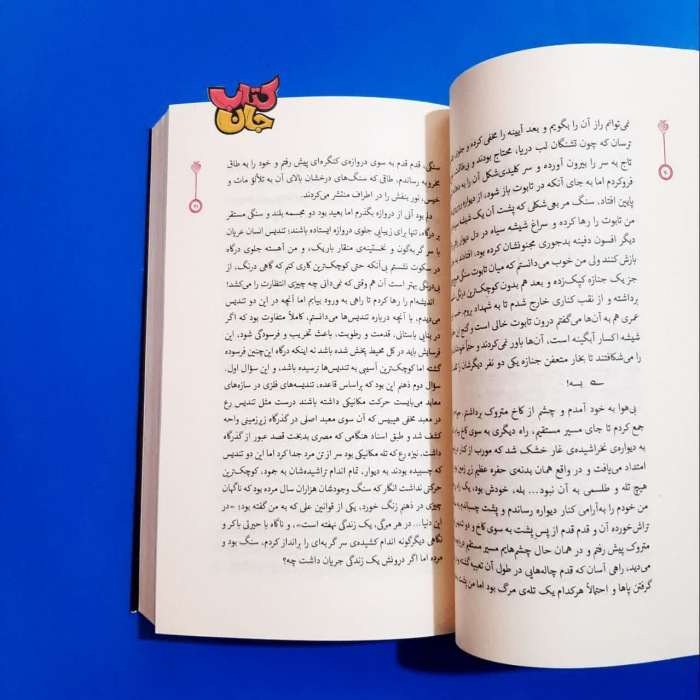 کتاب
جان
نمی‌توانم راز آن را بگویم و بعد آیینه را مخفی کرده و جلوی
ترسان که چون تشنگان لب دریا، محتاج بودند و بی‌طاقت
تاج به سر را بیرون آورده و سر کلیدی‌شکل آن را به
فروکردم اما به جای آنکه در تابوت باز شود، از دیواره
پایین افتاد. سنگ مربعی‌شکلی که پشت آن یک شیشه
من تابوت را رها کرده و سراغ شیشه سیاه در دل دیوار
دیگر افسون دفینه بدجوری مجنونشان کرده بود، افتادند به
بازش کنند ولی من خوب می‌دانستم که میان تابوت سنگی هیچ
جز یک جنازه کپک‌زده و بعد هم بدون کوچک‌ترین درنگی
برداشته و از نقب کناری خارج شدم تا به شهداد بروم.
عمری هم به آن‌ها می‌گفتم درون تابوت خالی است و گنج این
شیشه اکسار آبگینه است، آن‌ها باور نمی‌کردند و حتماً
را می‌شکافتند تا بخار متعفن جنازه یکی دو نفر دیگرشان را
بسه!
بی‌هوا به خود آمدم و چشم از کاخ متروک برداشتم.
جمع کردم تا جای مسیر مستقیم، راه دیگری به سوی کاخ
به دیواره‌ی نخراشیده‌ی غار خشک شد که مورب از کنار
امتداد می‌یافت و در واقع همان بدنه‌ی حفره عظیم زیر زمین
هیچ تله و طلسمی به آن نبود... بله، خودش بود، یک راه
من خودم را به‌آرامی کنار دیواره رساندم و پشت چسبانده به
تراش‌خورده آن و قدم قدم از پس پشت به سوی کاخ و دو
متروک پیش رفتم و در همان حال چشم‌هایم مسیر مستقیم
می‌دید، راهی آسان که قدم چاله‌هایی در طول آن تعبیه
گرفتن پاها و احتمالاً هرکدام یک تله‌ی مرگ بود اما من پشت
سنگی، قدم قدم به سوی دروازه‌ی کنگره‌ای پیش رفتم و خود را به طاق
مخروبه رساندم، طاقی که سنگ‌های درخشان بالای آن به تلألؤ مات و
خیس، نور بنفش را در اطراف منتشر می‌کردند.
دلم بود آنی از دروازه بگذرم اما بعید بود دو مجسمه بلند و سنگی مستقر
بر درگاه، تنها برای زیبایی جلوی دروازه ایستاده باشند؛ تندیس انسان عریان
با سر گربه‌گون و نخستینه‌ی منقار باریک، و من آهسته جلوی درگاه
در سکوت نشستم بی‌آنکه حتی کوچک‌ترین کاری کنم که گاهی درنگ، از
بی‌درنگی بهتر است آن هم وقتی که نمی‌دانی چه چیزی انتظارت را می‌کشد!
اندیشه‌ام را رها کردم تا راهی به ورود بیابم اما آنچه در این دو تندیس
می‌دیدم، با آنچه درباره تندیس‌ها می‌دانستم، کاملاً متفاوت بود که اگر
در بنایی باستانی، قدمت و رطوبت، باعث تخریب و فرسودگی شود، این
فرسایش باید در کل محیط پخش شده باشد نه اینکه درگاه این‌چنین فرسوده
گشته اما کوچک‌ترین آسیبی به تندیس‌ها نرسیده باشد، و این سؤال اول،
سؤال دوم ذهنم این بود که براساس قاعده، تندیسه‌های فلزی در سازه‌های
معابد می‌بایست حرکت مکانیکی داشته باشند درست مثل تندیس رع
در معبد مخفی هیبیس که آن سوی معبد اصلی در گذرگاه زیرزمینی واحه
کشف شد و طبق اسناد هنگامی که مصری بدبخت قصد عبور از گذرگاه
داشت، نیزه رع که تله مکانیکی بود سر از تن مرد جدا کرد اما این دو تندیس
که چسبیده بودند به دیوار، تمام اندام تراشیده‌شان به جمود، کوچک‌ترین
حرکتی نداشت انگار که سنگ وجودشان هزاران سال مرده بود که ناگهان
چیزی در ذهنم زنگ خورد، یکی از قوانین علی که به من گفته بود؛ «در
این دنیا... در هر مرگی، یک زندگی نهفته است»، و ناگاه با حیرتی باکر و
نگاهی دیگرگونه اندام کشیده‌ی سر گربه‌ای را برانداز کردم، سنگ بود و
مرده اما اگر درونش یک زندگی جریان داشت چه؟